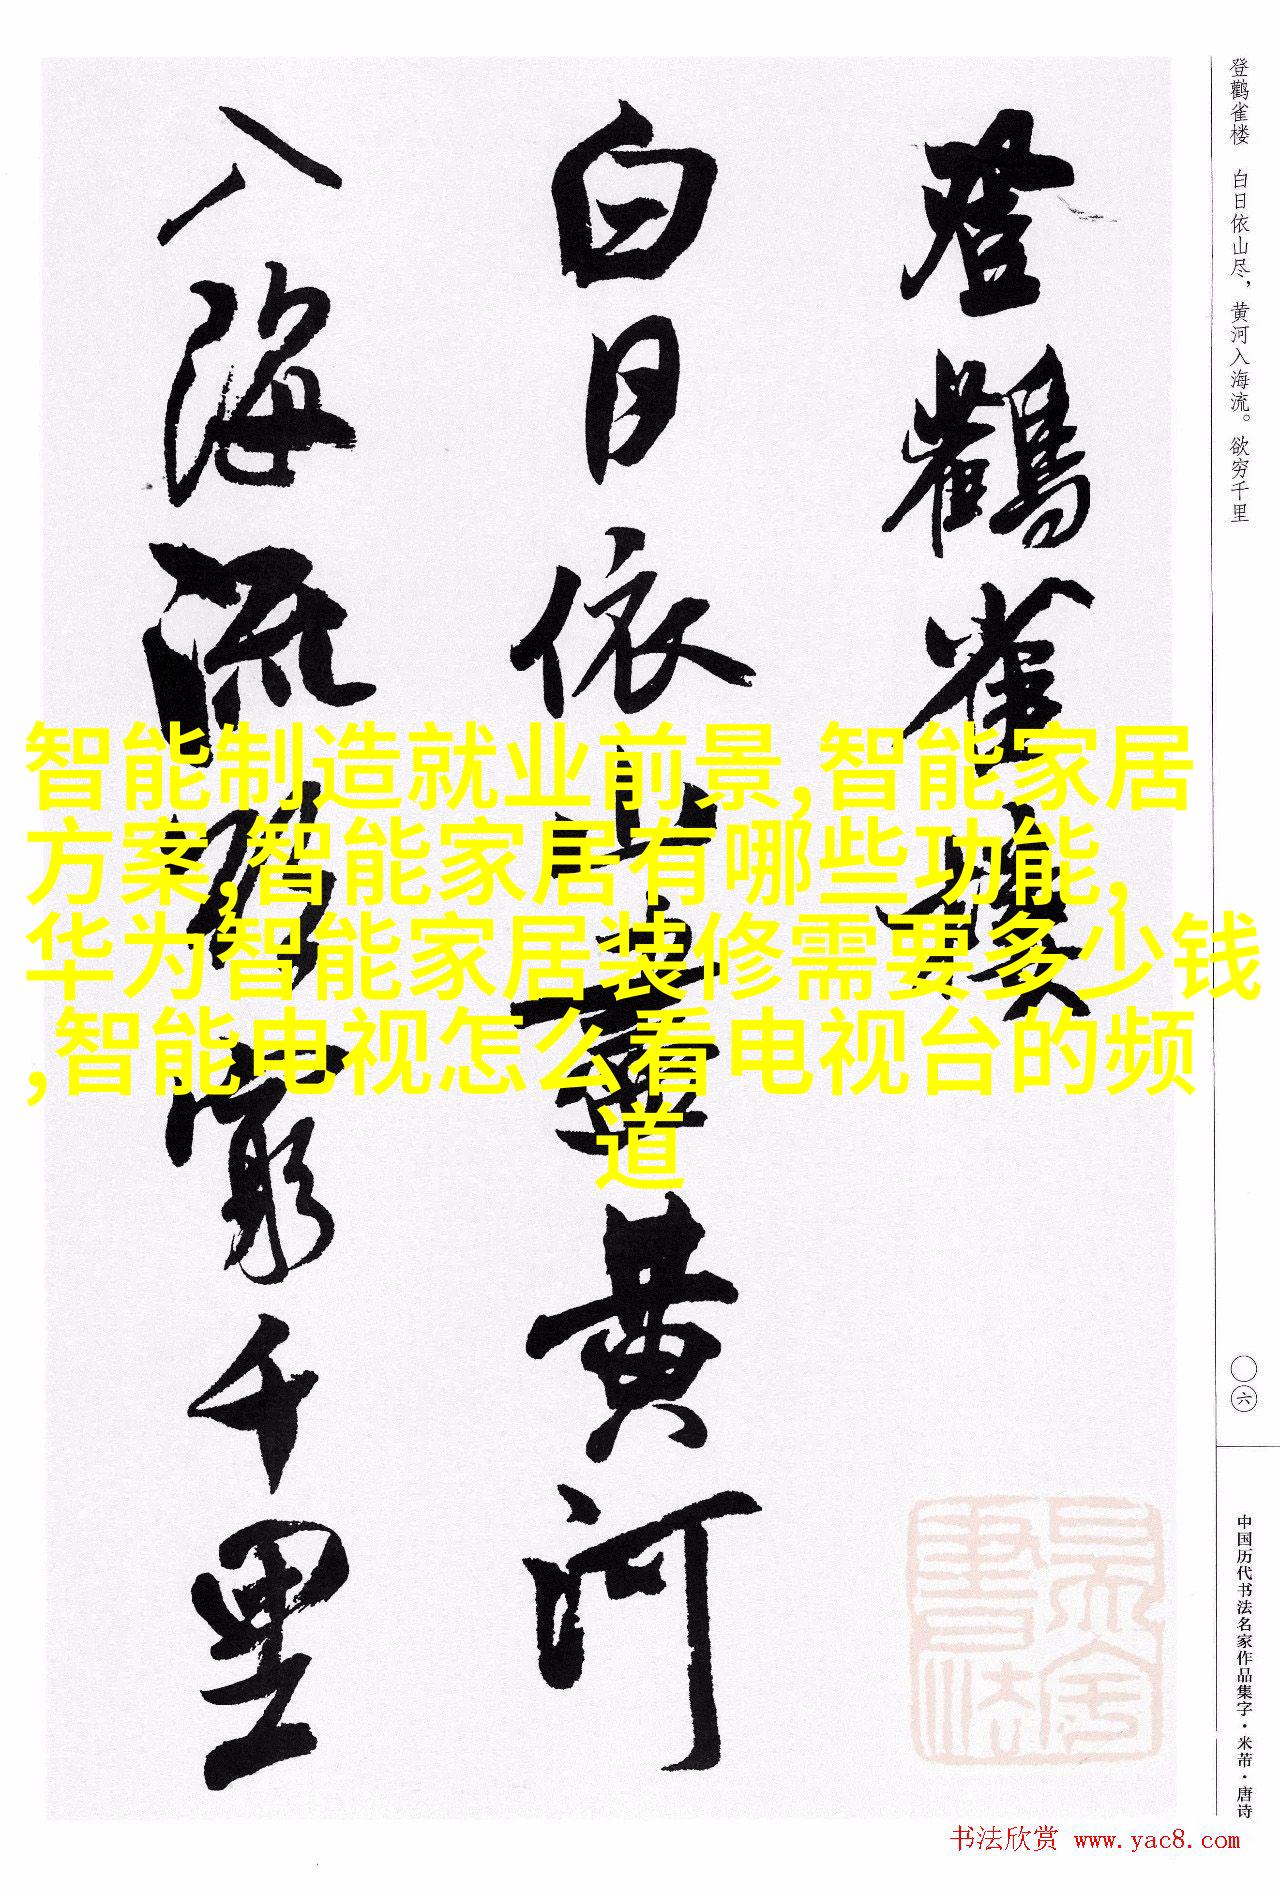 登鹳雀楼 白日依山尽，黄河入海流。欲穷千里
登鸛雀樓
白日依山盡黄河
入海流欲窮千里
智能制造就业前景,智能家居
方案,智能家居有哪些功能,
华为智能家居装修需要多少钱
,智能电视怎么看电视台的频
道
〇六
中国历代书法名家作品集字·米芾·唐诗
书法欣赏 www.yac8.com